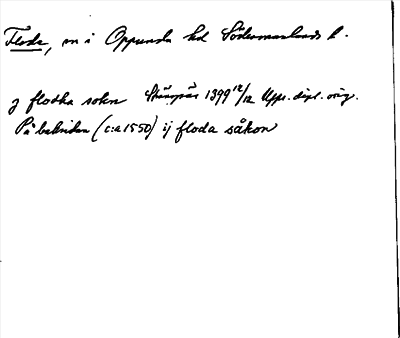 Floda, sn i Oppunda hd Södermanlands l.
j flodha sokn Strängnäs 1399 12/12 Upps. dipl. orig.
På baksidan (c:a 1550) ij floda såkon